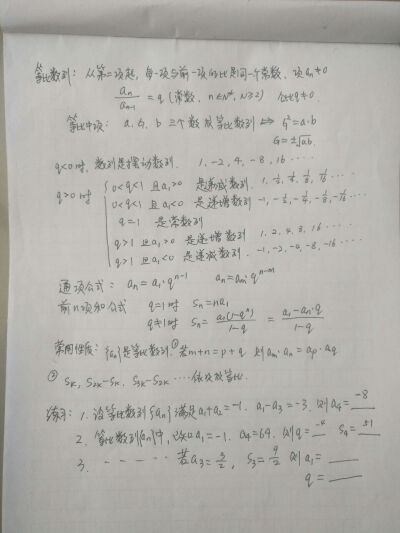 等比数列: 从第二项起, 每一项与前一项的比是同一个常数. 项aₙ≠0
aₙ/aₙ₋₁ = q (常数, n∈N*, n≥2) 公比q≠0.
等比中项: a, G, b 三个数成等比数列 ⟺ G²=a·b
G=±√ab.
q<0时, 数列是摆动数列. 1, -2, 4, -8, 16 ····
q>0时 { 0<q<1 且a₁>0 是递减数列. 1, ½, ¼, ⅛, 1/16 ····
0<q<1 且a₁<0 是递增数列 -1, -½, -¼, -⅛, -1/16 ····
q=1 是常数列
q>1 且a₁>0 是递增数列 1, 2, 4, 8, 16 ····
q>1 且a₁<0 是递减数列. -1, -2, -4, -8, -16 ····
通项公式: aₙ=a₁·qⁿ⁻¹ aₙ=aₘ·qⁿ⁻ᵐ
前n项和公式 q=1时 Sₙ=na₁
q≠1时 Sₙ= a₁(1-qⁿ)/1-q = a₁-aₙ·q/1-q
常用性质: {aₙ}是等比数列. ①若m+n=p+q 则aₘ·aₙ=aₚ·a_q
② Sₖ, S₂ₖ-Sₖ, S₃ₖ-S₂ₖ ····依次成等比.
练习: 1. 设等比数列{aₙ}满足a₁+a₂=-1. a₁-a₃=-3, 则a₄= -8
2. 等比数列{aₙ}中, a₁=-1. a₄=64. 则q= -4 S₄= 51
3. - - - - - 若a₃=3/2, S₃=9/2 则a₁= ___
q= ___